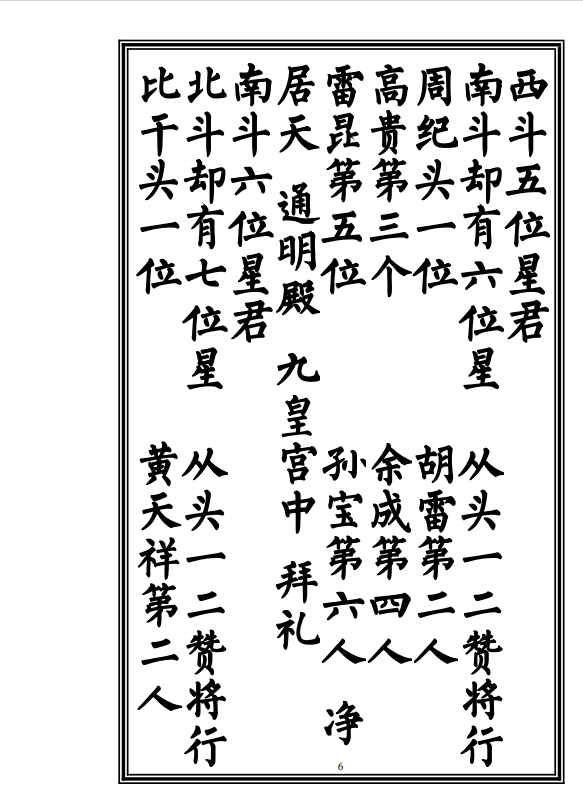 西斗五位星君
南斗却有六位星 从头一二赞将行
周纪头一位 胡雷第二人
高贵第三个 余成第四人
雷昆第五位 孙宝第六人 净
居天 通明殿 九皇宫中 拜礼
南斗六位星君
北斗却有七位星 从头一二赞将行
比干头一位 黄天祥第二人
6